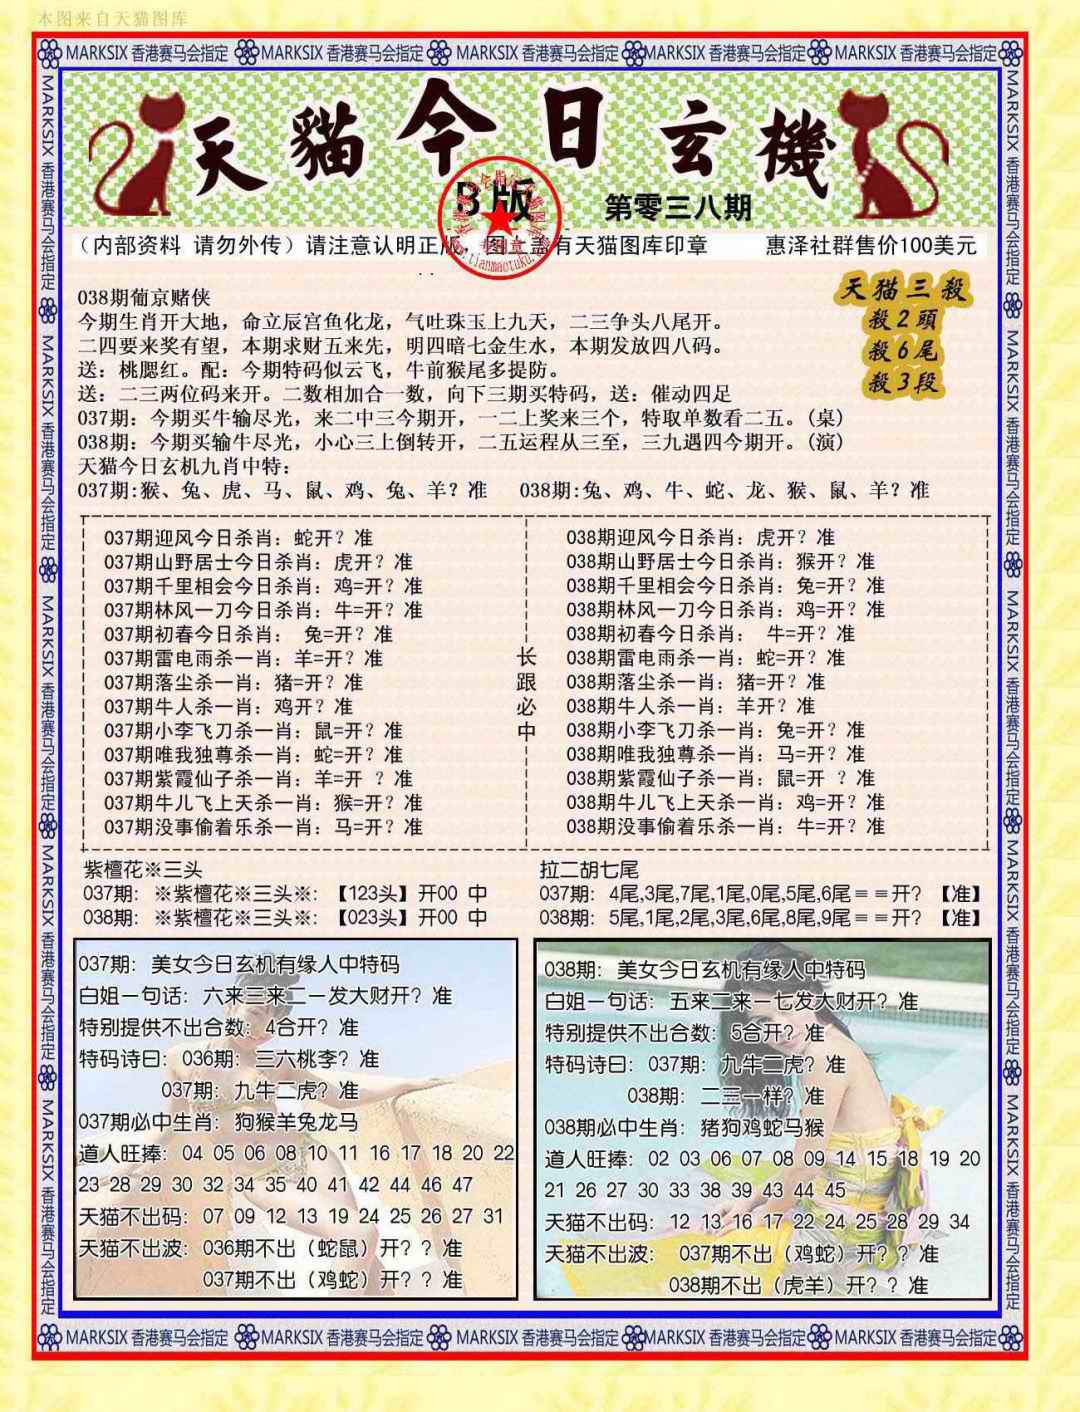 本图来自天猫图库
MARKSIX 香港赛马会指定 MARKSIX 香港赛马会指定 MARKSIX 香港赛马会指定 MARKSIX 香港赛马会指定 MARKSIX 香港赛马会指定
天貓今日玄機
B版
第零三八期
(内部资料 请勿外传)请注意认明正版,图上盖有天猫图库印章 惠泽社群售价100美元
天猫三殺
殺2頭
殺6尾
殺3段
038期葡京赌侠
今期生肖开大地,命立辰宫鱼化龙,气吐珠玉上九天,二三争头八尾开。
二四要来奖有望,本期求财五来先,明四暗七金生水,本期发放四八码。
送:桃腮红。配:今期特码似云飞,牛前猴尾多提防。
送:二三两位码来开。二数相加合一数,向下三期买特码,送:催动四足
037期:今期买牛输尽光,来二中三今期开,一二上奖来三个,特取单数看二五。(桌)
038期:今期买输牛尽光,小心三上倒转开,二五运程从三至,三九遇四今期开。(演)
天猫今日玄机九肖中特:
037期:猴、兔、虎、马、鼠、鸡、兔、羊?准 038期:兔、鸡、牛、蛇、龙、猴、鼠、羊?准
037期迎风今日杀肖:蛇开?准
037期山野居士今日杀肖:虎开?准
037期千里相会今日杀肖:鸡=开?准
037期林风一刀今日杀肖:牛=开?准
037期初春今日杀肖: 兔=开?准
037期雷电雨杀一肖:羊=开?准
037期落尘杀一肖:猪=开?准
037期牛人杀一肖:鸡开?准
037期小李飞刀杀一肖:鼠=开?准
037期唯我独尊杀一肖:蛇=开?准
037期紫霞仙子杀一肖:羊=开 ?准
037期牛儿飞上天杀一肖:猴=开?准
037期没事偷着乐杀一肖:马=开?准
长跟必中
038期迎风今日杀肖:虎开?准
038期山野居士今日杀肖:猴开?准
038期千里相会今日杀肖:兔=开?准
038期林风一刀今日杀肖:鸡=开?准
038期初春今日杀肖: 牛=开?准
038期雷电雨杀一肖:蛇=开?准
038期落尘杀一肖:猪=开?准
038期牛人杀一肖:羊开?准
038期小李飞刀杀一肖:兔=开?准
038期唯我独尊杀一肖:马=开?准
038期紫霞仙子杀一肖:鼠=开 ?准
038期牛儿飞上天杀一肖:鸡=开?准
038期没事偷着乐杀一肖:牛=开?准
紫檀花※三头
037期: ※紫檀花※三头※:【123头】开00 中
038期: ※紫檀花※三头※:【023头】开00 中
拉二胡七尾
037期: 4尾,3尾,7尾,1尾,0尾,5尾,6尾==开?【准】
038期: 5尾,1尾,2尾,3尾,6尾,8尾,9尾==开?【准】
037期:美女今日玄机有缘人中特码
白姐一句话:六来三来二一发大财开?准
特别提供不出合数:4合开?准
特码诗曰:036期:三六桃李?准
037期:九牛二虎?准
037期必中生肖:狗猴羊兔龙马
道人旺捧:04 05 06 08 10 11 16 17 18 20 22
23 28 29 30 32 34 35 40 41 42 44 46 47
天猫不出码:07 09 12 13 19 24 25 26 27 31
天猫不出波:036期不出(蛇鼠)开??准
037期不出(鸡蛇)开??准
038期:美女今日玄机有缘人中特码
白姐一句话:五来二来一七发大财开?准
特别提供不出合数:5合开?准
特码诗曰:037期:九牛二虎?准
038期:二三一样?准
038期必中生肖:猪狗鸡蛇马猴
道人旺捧:02 03 06 07 08 09 14 15 18 19 20
21 26 27 30 33 38 39 43 44 45
天猫不出码:12 13 16 17 22 24 25 28 29 34
天猫不出波: 037期不出(鸡蛇)开??准
038期不出(虎羊)开??准
MARKSIX 香港赛马会指定 MARKSIX 香港赛马会指定 MARKSIX 香港赛马会指定 MARKSIX 香港赛马会指定 MARKSIX 香港赛马会指定